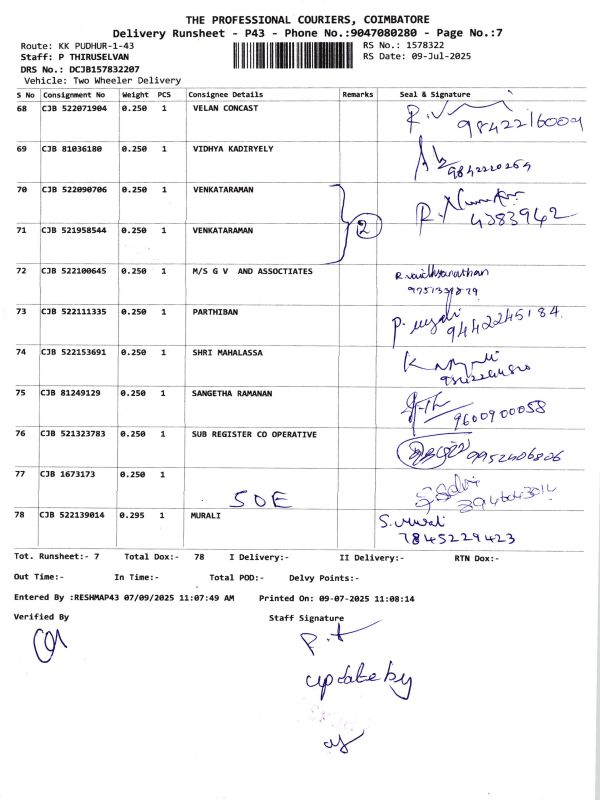 THE PROFESSIONAL COURIERS, COIMBATORE
Delivery Runsheet - P43 - Phone No.:9047080280 - Page No.:7
Route: KK PUDHUR-1-43 RS No.: 1578322
Staff: P THIRUSELVAN RS Date: 09-Jul-2025
DRS No.: DCJB157832207
Vehicle: Two Wheeler Delivery
S No Consignment No Weight PCS Consignee Details Remarks Seal & Signature
68 CJB 522071904 0.250 1 VELAN CONCAST
9842216009
69 CJB 81036180 0.250 1 VIDHYA KADIRYELY
9842220264
70 CJB 522090706 0.250 1 VENKATARAMAN
4383942
2
71 CJB 521958544 0.250 1 VENKATARAMAN
72 CJB 522100645 0.250 1 M/S G V AND ASSOCTIATES R.vaidhyanathan
73 CJB 522111335 0.250 1 PARTHIBAN
9442245184
74 CJB 522153691 0.250 1 SHRI MAHALASSA
75 CJB 81249129 0.250 1 SANGETHA RAMANAN
9600900058
76 CJB 521323783 0.250 1 SUB REGISTER CO OPERATIVE
9952406806
77 CJB 1673173 0.250 1
SOE
78 CJB 522139014 0.295 1 MURALI S. Murali
7845229423
Tot. Runsheet:- 7 Total Dox:- 78 I Delivery:- II Delivery:- RTN Dox:-
Out Time:- In Time:- Total POD:- Delvy Points:-
Entered By :RESHMAP43 07/09/2025 11:07:49 AM Printed On: 09-07-2025 11:08:14
Verified By Staff Signature
P.t
update by